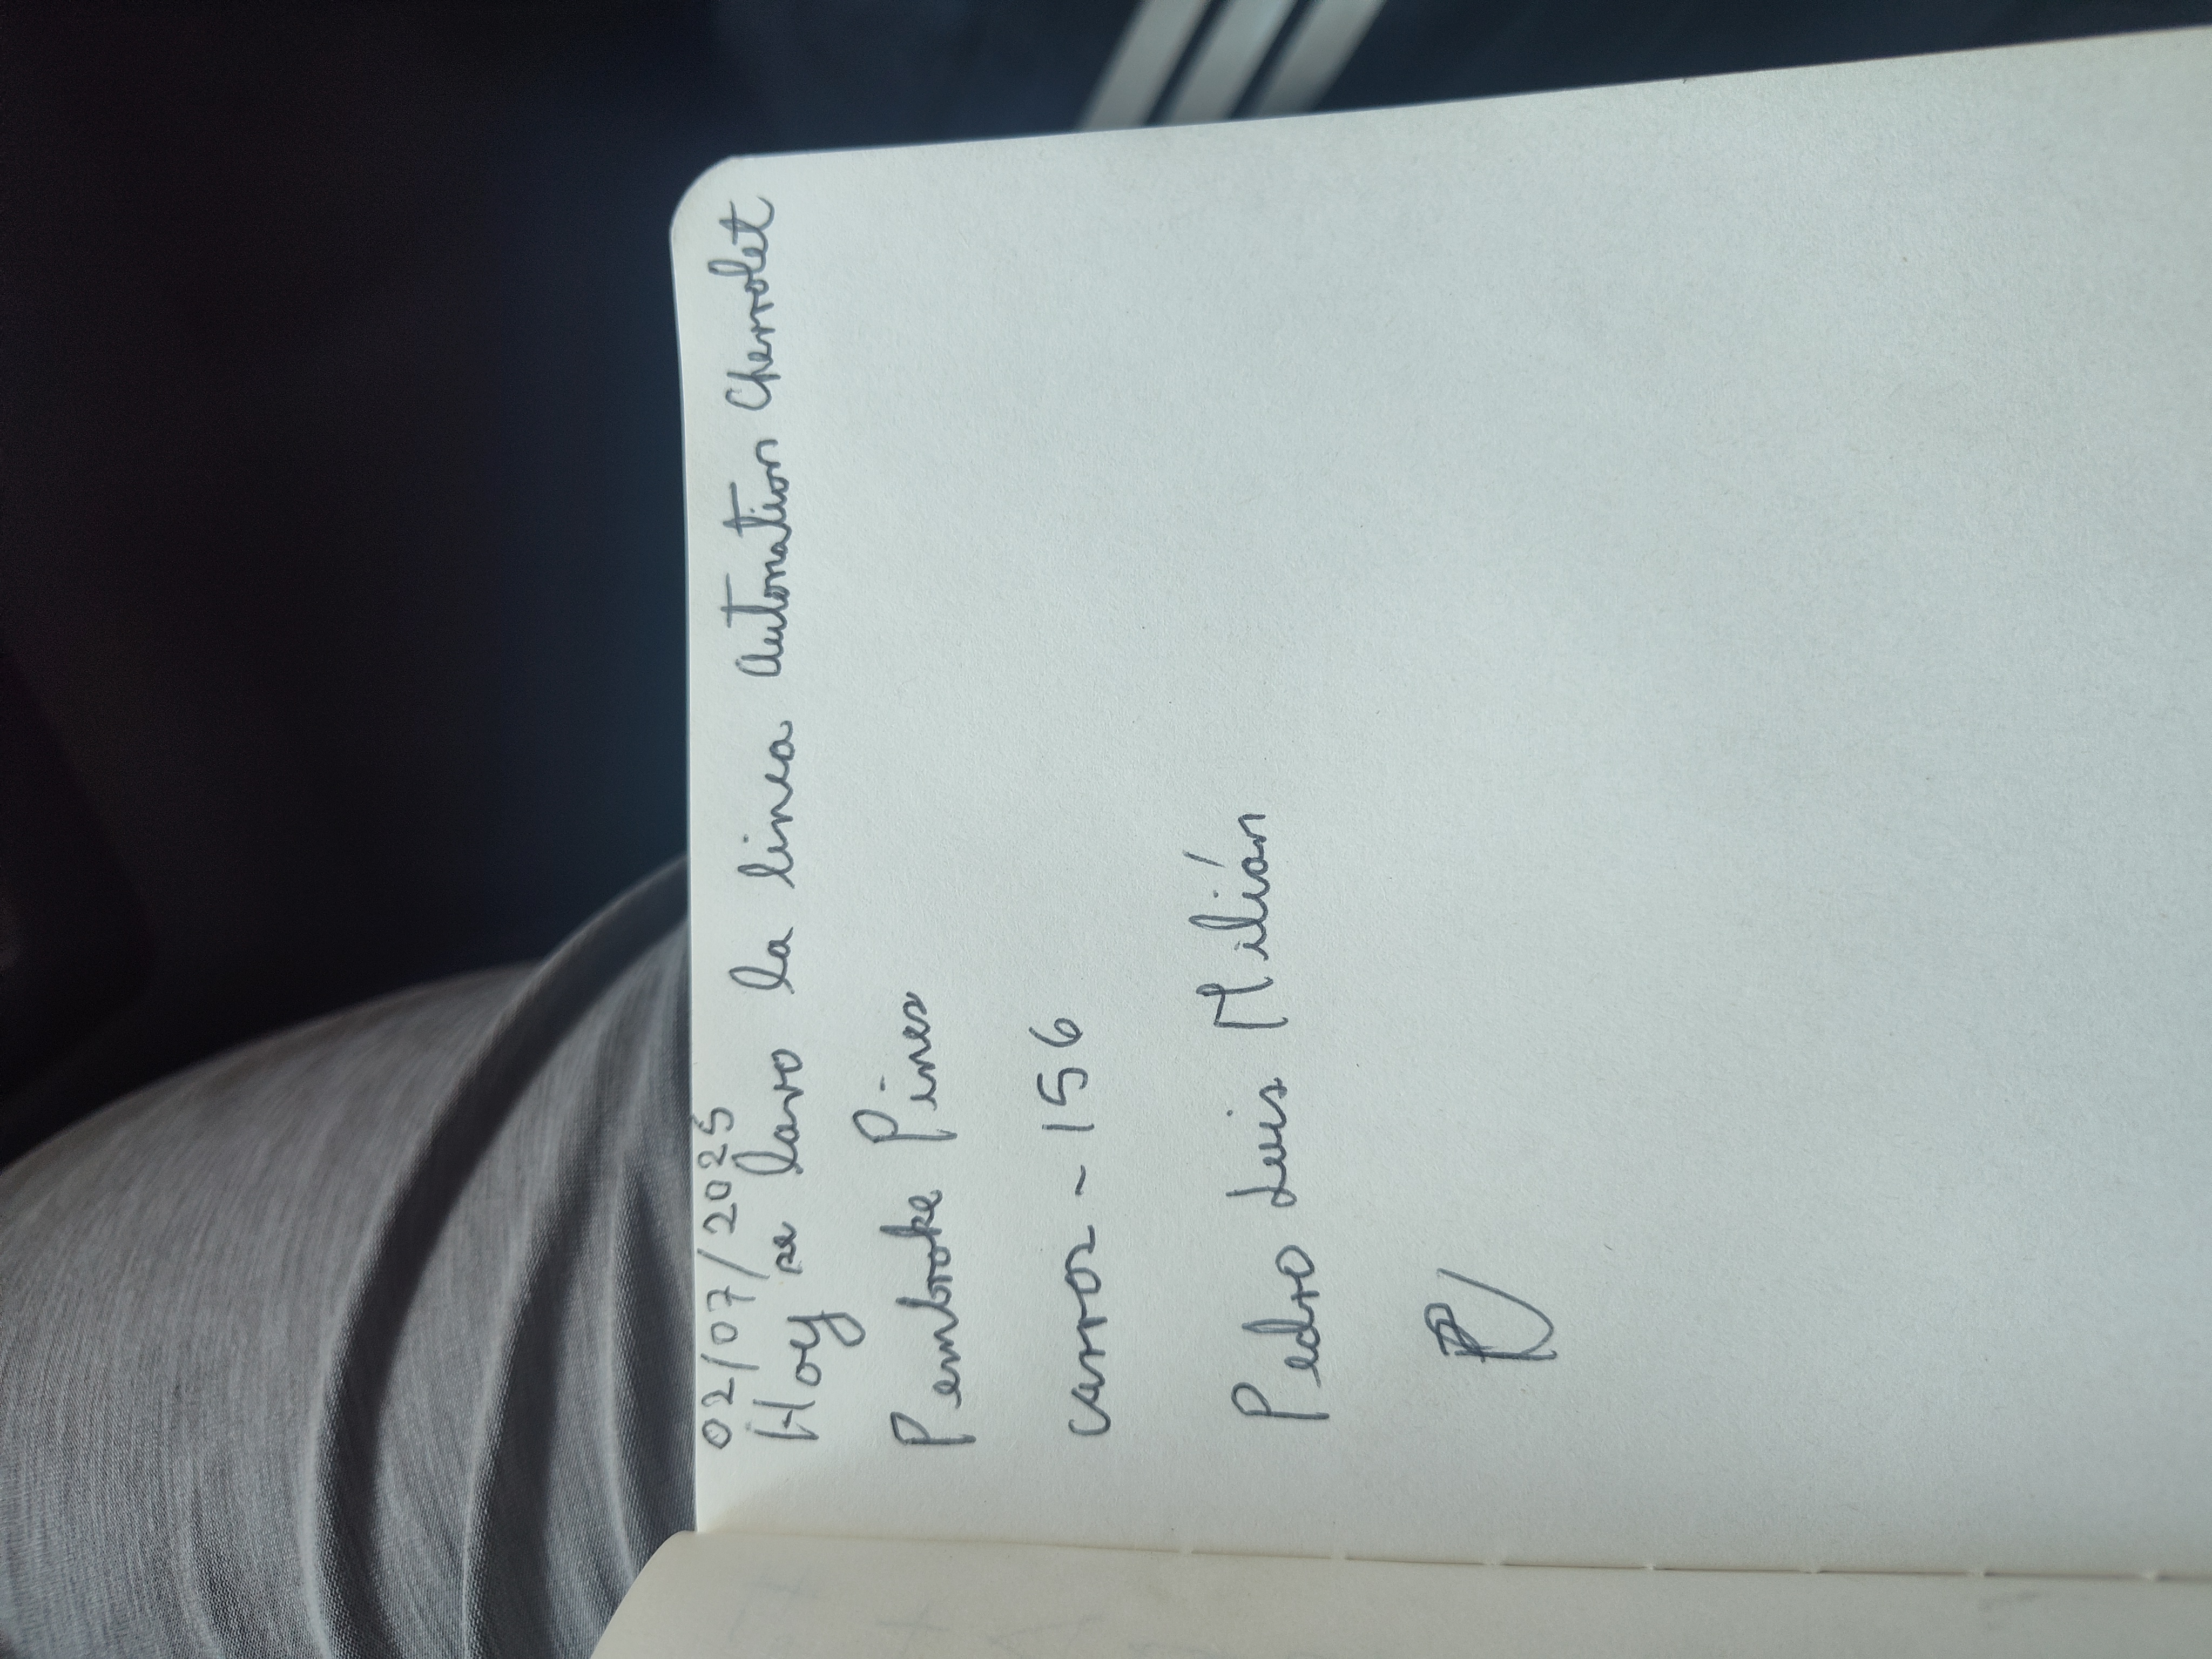 02/07/2025
Hoy se lavo la linea Autonation Chevrolet
Pembroke Pines
carros - 156
Pedro Luis Milián